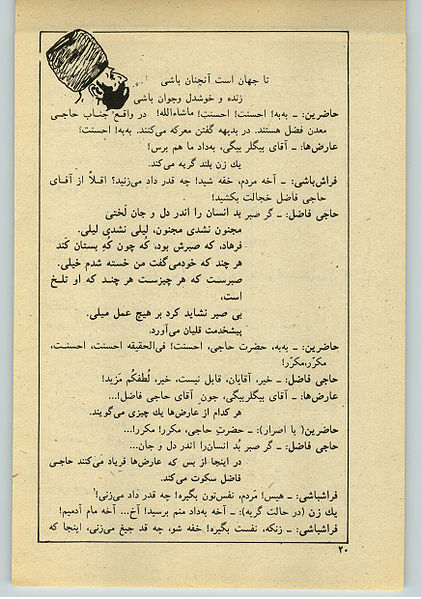 تا جهان است آنچنان باشی
زنده و خوشدل وجوان باشی
حاضرین: ـ به‌به! احسنت! احسنت! ماشاءالله! در واقع جناب حاجی
معدن فضل هستند. در بدیهه گفتن معرکه می‌کنند. به‌به! احسنت!
عارض‌ها: ـ آقای بیگلر بیگی، به‌داد ما هم برس!
یك زن بلند گریه می‌کند.
فراش‌باشی: ـ آخه مردم، خفه شید! چه قدر داد می‌زنید؟ اقلاً از آقای
حاجی فاضل خجالت بکشید!
حاجی فاضل: ـ گر صبر بد انسان را اندر دل و جان لختی
مجنون نشدی مجنون، لیلی نشدی لیلی.
فرهاد، که صبرش بود، که چون کُهِ بستان کَند
هر چند که خودمی‌گفت من خسته شدم خیلی.
صبرست که هر چیزست هر چند که او تلخ
است،
بی صبر نشاید کرد بر هیچ عمل میلی.
پیشخدمت قلیان می‌آورد.
حاضرین: ـ به‌به، حضرت حاجی، احسنت! فی‌الحقیقه احسنت، احسنت،
مکرّر،مکرّر!
حاجی فاضل: ـ خیر، آقایان، قابل نیست، خیر، لُطفکُم مَزید!
عارض‌ها: ـ آقای بیگلربیگی، جونِ آقای حاجی فاضل!...
هر کدام از عارض‌ها یك چیزی می‌گویند.
حاضرین( با اصرار): ـ حضرتِ حاجی، مکرر! مکرر!...
حاجی فاضل: ـ گر صبر بُد انسان‌را اندر دل و جان...
در اینجا از بس که عارض‌ها فریاد می‌کنند حاجی
فاضل سکوت می‌کند.
فراشباشی: ـ هیس! مَردم، نفس‌تون بگیره! چه قدر داد می‌زنی!
یك زن (در حالت گریه): ـ آخه به‌داد منم برسید! آخ... آخه مام آدمیم!
فراشباشی: ـ زنکه، نفست بگیره! خفه شو، چه قد جیغ می‌زنی، اینجا که
۲۰